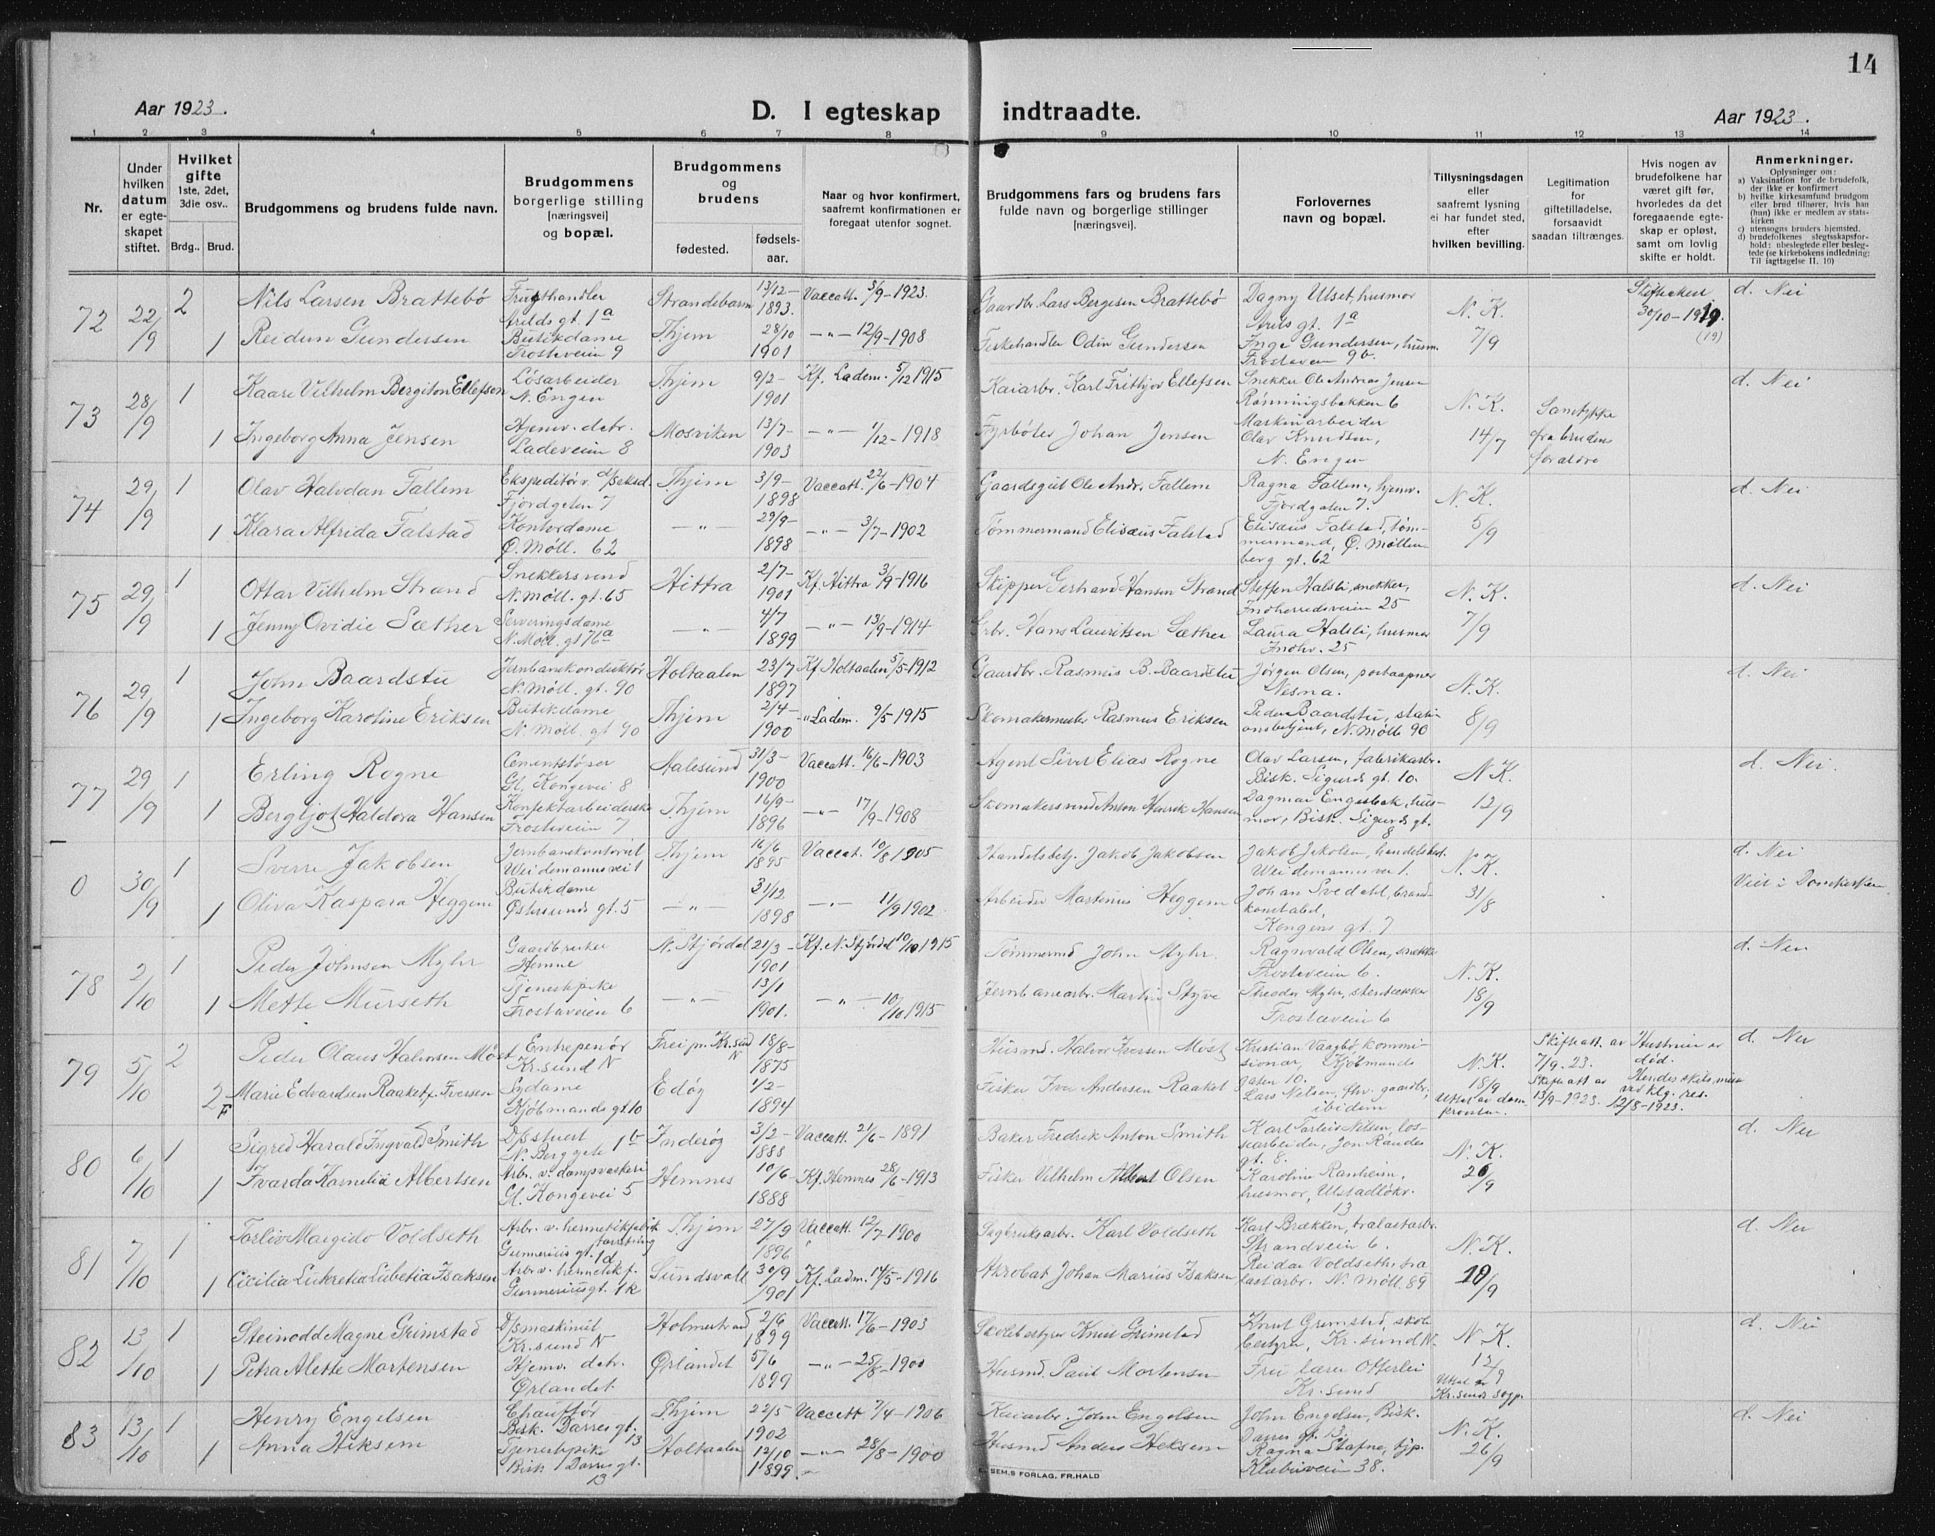 14
Aar 1923.
D. I egteskap indtraadte.
Aar 1923.
1 2 3 4 5 6 7 8 9 10 11 12 13 14
Nr.
Under hvilken datum er egteskapet stiftet.
Hvilket gifte 1ste, 2det, 3die osv..
Brdg.. Brud.
Brudgommens og brudens fulde navn.
Brudgommens borgerlige stilling [næringsvei] og bopæl.
Brudgommens og brudens
fødested. fødselsaar.
Naar og hvor konfirmert, saafremt konfirmationen er foregaat utenfor sognet.
Brudgommens fars og brudens fars fulde navn og borgerlige stillinger [næringsvei].
Forlovernes navn og bopæl.
Tillysningsdagen eller saafremt lysning ei har fundet sted, efter hvilken bevilling.
Legitimation for giftetilladelse, forsaavidt saadan tiltrænges.
Hvis nogen av brudefolkene har været gift før, hvorledes da det foregaaende egteskap er opløst, samt om lovlig skifte er holdt.
Anmerkninger.
Oplysninger om:
a) Vaksination for de brudefolk, der ikke er konfirmert
b) hvilke kirkesamfund brudgom eller brud tilhører, hvis han (hun) ikke er medlem av statskirken
c) utensogns bruders hjemsted.
d) brudefolkenes slegtsskapsforhold: ubeslegtede eller beslegtede (se kirkebokens indledning: Til iagttagelse II, 10)
72 22/9 2 Nils Larsen Brattebø Frugthandler Arilds gt. 1a Strandebarm 13/12-1893 Vaccatt. 5/9-1923. Gaardbr. Lars Bergesen Brattebø Dagny Utset, husmor Arils gt. 1a N. K. 7/9 Skifteattest 30/10-1919. (19) d. Nei
1 Reidun Gundersen Butikdame Frosteveien 9 Thjem 28/10 1901 -"- 12/9-1908 Fiskehandler Odin Gundersen Inge Gundersen, husm. Frosteveien 9b.
73 28/9 1 Kaare Vilhelm Bergiton Ellefsen Løsarbeider N. Engen Thjem 9/2-1901 Kf. Ladem. 5/12 1915 Kaiarbr. Karl Frithjov Ellefsen Snekker Ole Andreas Jensen Rønningsbakken 6 N. K. 14/7 Samtykke fra brudens foraldre d. Nei
1 Ingeborg Anna Jensen Hjemv. detr. Ladeveien 8 Mosviken 13/7-1903 -"- 1/12-1918 Fyrbøter Johan Jensen Maskinarbeider Olav Knudsen, N. Engen
74 29/9 1 Olav Halvdan Fallem Ekspeditør Fjordgaten 7 Thjem 3/9-1898 Vaccatt. 22/6-1904 Gaardsgut Ole Andr. Fallem Ragna Fallem, hjemv. Fjordgaten 7. N. K. 5/9 d. Nei
1 Klara Alfrida Falstad Kontordame Ø. Møll. 62 -"- 29/9-1898 -"- 3/7-1902 Tømmermand Elisæus Falstad Elisæus Falstad, tømmermand, Ø. Møllenberg gt. 62
75 29/9 1 Ottar Vilhelm Strand Snekkersvend N. Møll. gt. 65 Hittra 2/7-1901 Kf. Hittra 3/9-1916 Skipper Gerhard Hansen Strand Steffen Halsli, snekker, Indherredsveien 25 N. K. 7/9 d. Nei
1 Jenny Ovidie Sæther Serveringsdame N. Møll. gt 76a -"- 4/7 1899 -"- 13/9-1914 Grbr. Hans Lauritsen Sæther Laura Halsli, husmor Indhv. 25
76 29/9 1 John Baardstu Jernbanekonduktør N. Møll. gt. 90 Holtaalen 23/7 1897 Kf. Holtaalen 5/5-1912 Gaardbr. Rasmus B. Baardstu Jørgen Olsen, portaapner Nesma. N. K. 8/9 d. Nei
1 Ingeborg Karoline Eriksen Butikdame N. Møll. gt 90 Thjem 2/4-1900 -"- Ladem. 9/5-1915 Skomakermester Rasmus Eriksen Peder Baardstu, stationsbetjent, N. Møllb 90
77 29/9 1 Erling Rogne Cementstøper Gl. Kongevei 8 Aalesund 31/3-1900 Vaccatt. 16/6-1903 Agent Siver Elias Rogne Olav Larsen, fabrikarbr. Bisk. Sigurds gt. 10. N. K. 12/9 d. Nei.
1 Bergljot Haldora Hansen Konfektarbeiderske Frostaveien 7 Thjem 16/9-1896 -"- 17/9-1908 Skomakersvend Anton Henrik Hansen Dagmar Engesbak, husmor, Bisk. Sigurds gt. 8
0 30/9 1 Sverre Jakobsen Jernbanekontorist Weidemannsvei 1 Thjem 16/6 1895 Vaccat. 10/8 1905 Handelsbetj. Jakob Jakobsen Weidemannsvei 1. N. K. 31/8 d. Nei Viet i Domkirken
1 Oliva Kaspara Heggem Butikdame Østersunds gt. 5 -"- 31/12 1898 -"- 11/9 1902. Arbeider Martinus Heggem Johan Svedahl, brandkonstabel, Kongens gt. 7
78 2/10 1 Peder Johnsen Myhr Gaardbruker Hemne N. Stjørdal 21/3-1901 Kf. N. Stjørdal 10/10 1915 Tømmermd John Myhr Ragnvald Olsen, snekker Frostaveien 6. N. K. 18/9 d. Nei
1 Mette Murseth Tjenestepike Frostaveien 6 -"- 13/1 1901. -"- 10/10 1915 Jernbanearbr. Martin Styve Theodor Myhr, stentrækker Frostaveien 6
79 5/10 2 Peder Olaus Halvorsen Møst Entrepenør Kr. sund N Frei pr. Kr. sund N 18/8-1875 Husmd. Halvor Iversen Møst Kristian Vaagbø, kommisionær, Kjøbmandsgaten 10. N. K. 18/9 Utlat av domprovsten. Skifteatt. av 7/9. 23. Hustruen er død. d. Nei
2 F Marie Edvardsen Raaket, f. Iversen Sydame Kjøbmandsgt. 10 Edøy 4/2-1894 Fisker Iver Andersen Raaket Lars Nelsen, fhv. gaardbr. ibidem Skifteatt av 13/9-1923. 12/8-1923.
80 6/10 1 Sigred Harald Ingvald Smith D/s stuert N. Berggate 1b Inderøy 3/2-1888 Vaccatt. 21/6-1891 Baker Fredrik Anton Smith Karl Torleis Nilsen, løsarbeider, Jon Raudes gt. 8. N. K. 26/9 d. Nei
1 Ivarda Kornelia Albertsen Arb. v. dampvaskeri Gl. Kongevei 5 Hemnes 10/6 1888 Kf. Hemnes 28/6-1913 Fisker Vilhelm Albert Olsen Karoline Ranheim, husmor, Ulstadløkv. 13
81 7/10 1 Torliv Margido Voldseth Arb. v. hermetikfabrik forretning Gunnerius gt. 1d Thjem 27/9 1896 Vaccatt. 12/7-1900 Sagbruksarb. Karl Voldseth Karl Brækken, tralastarbr. Strandveien 6. N. K. 19/9 d. Nei
1 Cicilia Lukretia Lubetia Isaksen Arb. v. hermetikf. Gunneriusgt. 1k Sundsvall 30/9 1901 Kf. Ladm. 14/5-1916 Akrobat Johan Marius Isaksen Reidar Voldseth, tralastarbr. N. Møll. 89
82 13/10 1 Steinodd Magne Grimstad D/s maskinist Kr. sund N Holmestrand 2/6 1899 Vaccatt. 17/6-1903 Skolebestyrer Knut Grimstad Knut Grimstad, skolebestyrer, Kr. sund N. N. K. 12/9 Utlat av Kr. sunds sogp. d. Nei
1 Petra Alette Mortensen Hjemv. detr. Ørlandet Ørlandet 5/6 1899 -"- 25/8-1900 Husmd. Paul Mortensen Fru Otterlei Kr. sund
83 13/10 1 Henry Engelsen Chauffør Bisk. Darres gt. 13 Thjem 22/5 1902 Vaccatt 7/4-1906 Kaiarbr. John Engelsen John Engelsen, Bisk. Darres gt. 13. N. K. 26/9 d. Nei
1 Anna Heksem Tjenestepike Bisk Darres gt. 13 Holtaalen 12/10 1899. -"- 28/8-1900 Husmd Anders Heksem Ragna Stafne, tjp. Klæbuveien 38.
E. SEM.S FORLAG, FR.HALD